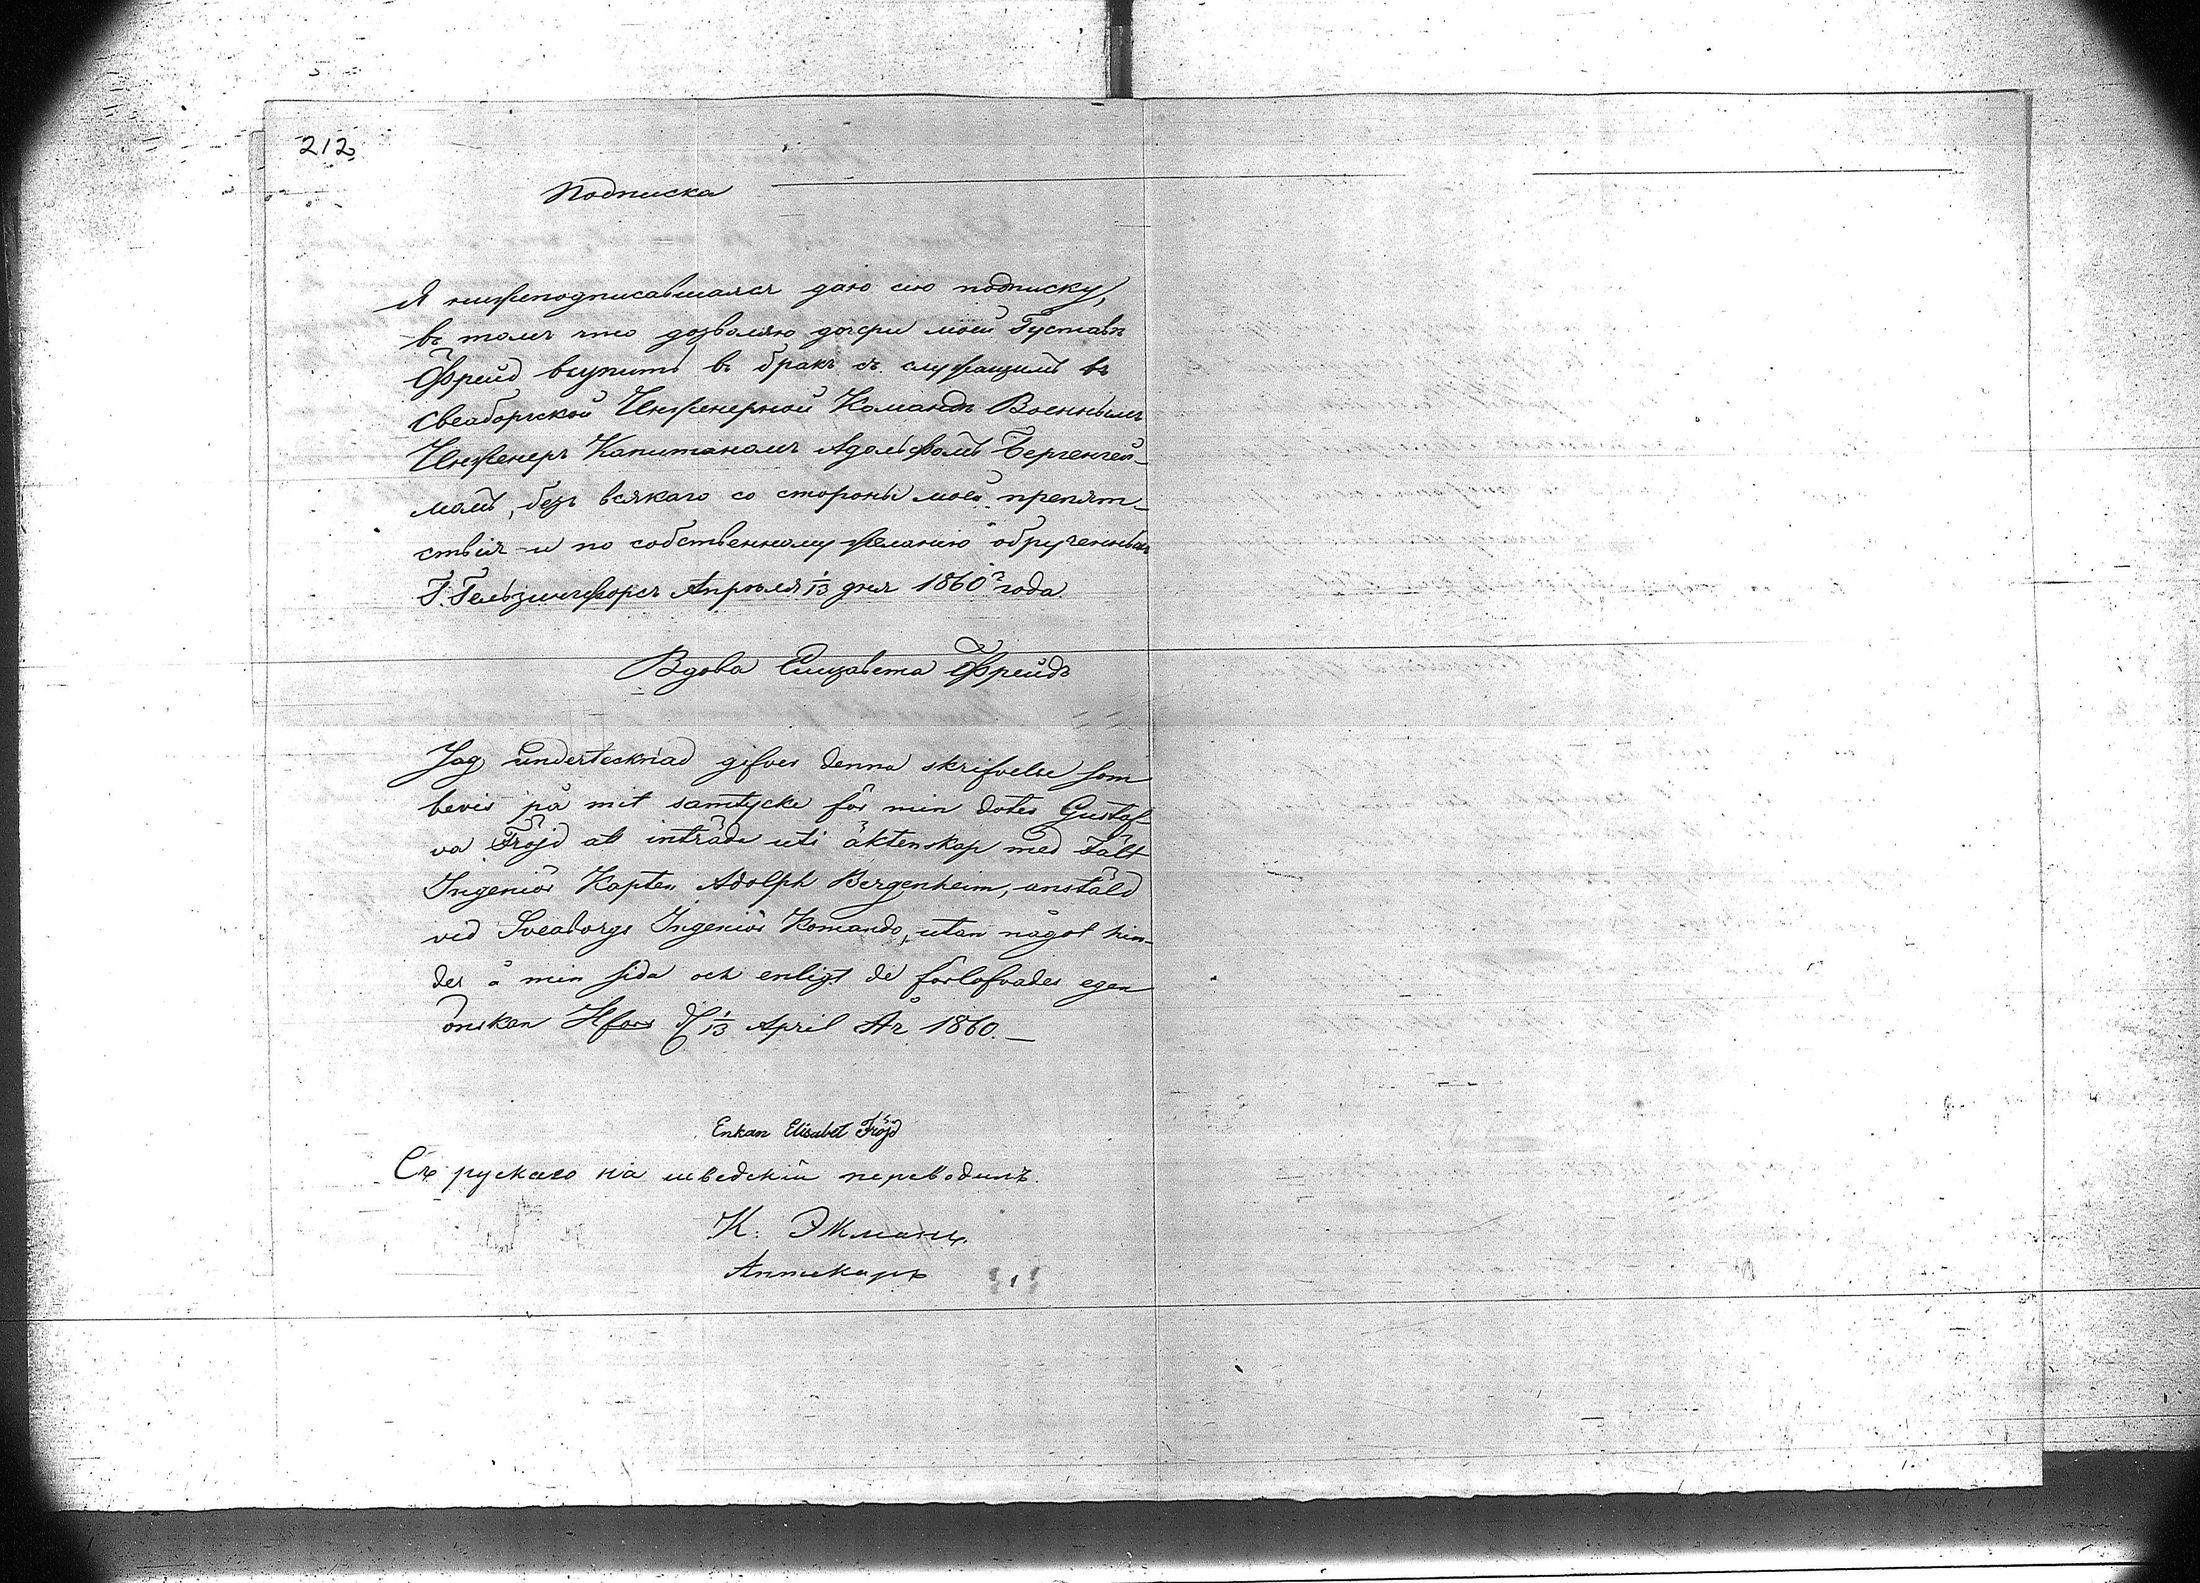 212
Подписка
Я нижеподписавшаяся даю сію подписку,
въ томъ что дозволяю дочери моей Густавѣ
Фрейд вступить въ бракъ съ служащимъ въ
Свеаборгской Инженерной Командѣ Военнымъ
Инженеръ Капитаномъ Адольфомъ Бергенгей-
момъ, безъ всякаго со стороны моей препят-
ствія и по собственному желанію обрученных
Г. Гельзингфорсъ Апрѣля 1/13 дня 1860 года.
Вдова Елизавета Фрейдъ
Jag undertecknad gifver denna skrifvelse som
bevis på mit samtycke för min doter Gustaf-
va Fröjd att inträda uti äktenskap med Fält
Ingeniör Kapten Adolph Bergenheim, anstäld
vid Sveaborgs Ingeniör Komando, utan något hin-
der å min sida och enligt de förlofvades egen
önskan Hfors d 1/13 April År 1860.
Enkan Elisabet Fröjd
Съ рускаго на шведскій переводилъ
К. Экманъ
Аптекарь